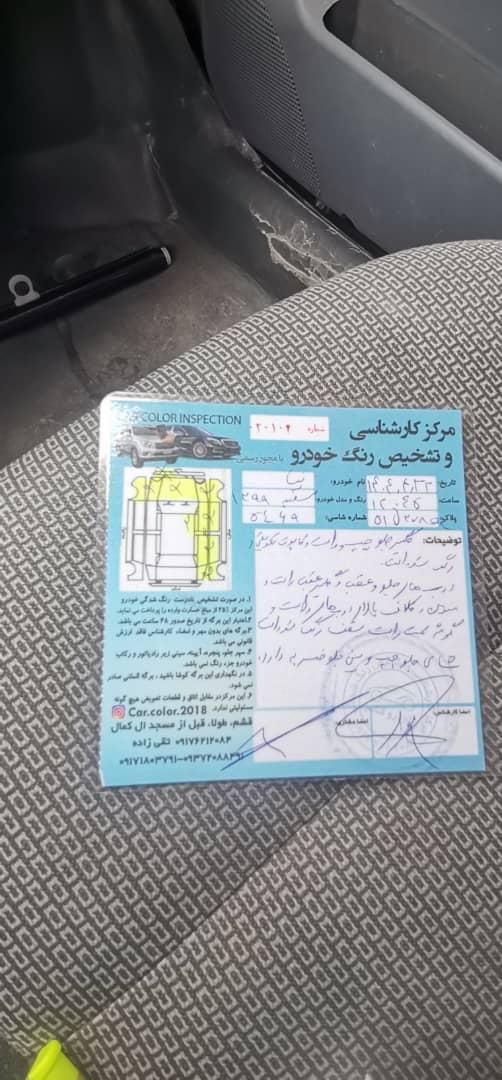 COLOR INSPECTION
شماره ۲۰۱۰۴
مرکز کارشناسی
و تشخیص رنگ خودرو
با مجوز رسمی
تاریخ: ۱۴۰۴,۴,۲۲ نام خودرو: تیبا
ساعت: ۱۲:۰۴۵ رنگ و مدل خودرو: سفید ۱۳۹۹
پلاک: شماره شاسی: ۵۴۶۹
توضیحات: گلگیر جلو چپ و راست و کاپوت تعویض
رنگ شده است.
درب های جلو و عقب و گلگیر عقب راست و
ستون، کلاف بالای درب های راست و
گوشه سمت راست سقف رنگ شده است
جلو چپ و سینی جلو ضربه دارد.
۱. در صورت تشخیص نادرست رنگ شدگی خودرو
این مرکز ۲۵٪ از مبلغ خسارت وارده را پرداخت می نماید.
۲.اعتبار این برگه از تاریخ صدور ۴۸ ساعت می باشد.
۳.برگه های بدون مهر و امضاء کارشناس فاقد ارزش
قانونی می باشد.
۴. سپر جلو، پنجره، آیینه، سینی زیر رادیاتور و رکاب
خودرو جزء رنگ نمی باشد.
۵. در نگهداری این برگه کوشا باشید ، برگه المثنی صادر
نمی شود.
۶. این مرکز در مقابل اتاق و قطعات تعویض هیچ گونه
مسئولیتی ندارد.
Car.color.2018
قشم، هولا، قبل از مسجد ال کمال
۰۹۱۷۶۲۱۲۰۸۲ تقی زاده
۰۹۱۷۱۸۰۳۷۹۱-۰۹۳۷۲۰۸۸۲۹۱
امضا مشتری:
امضا کارشناس: